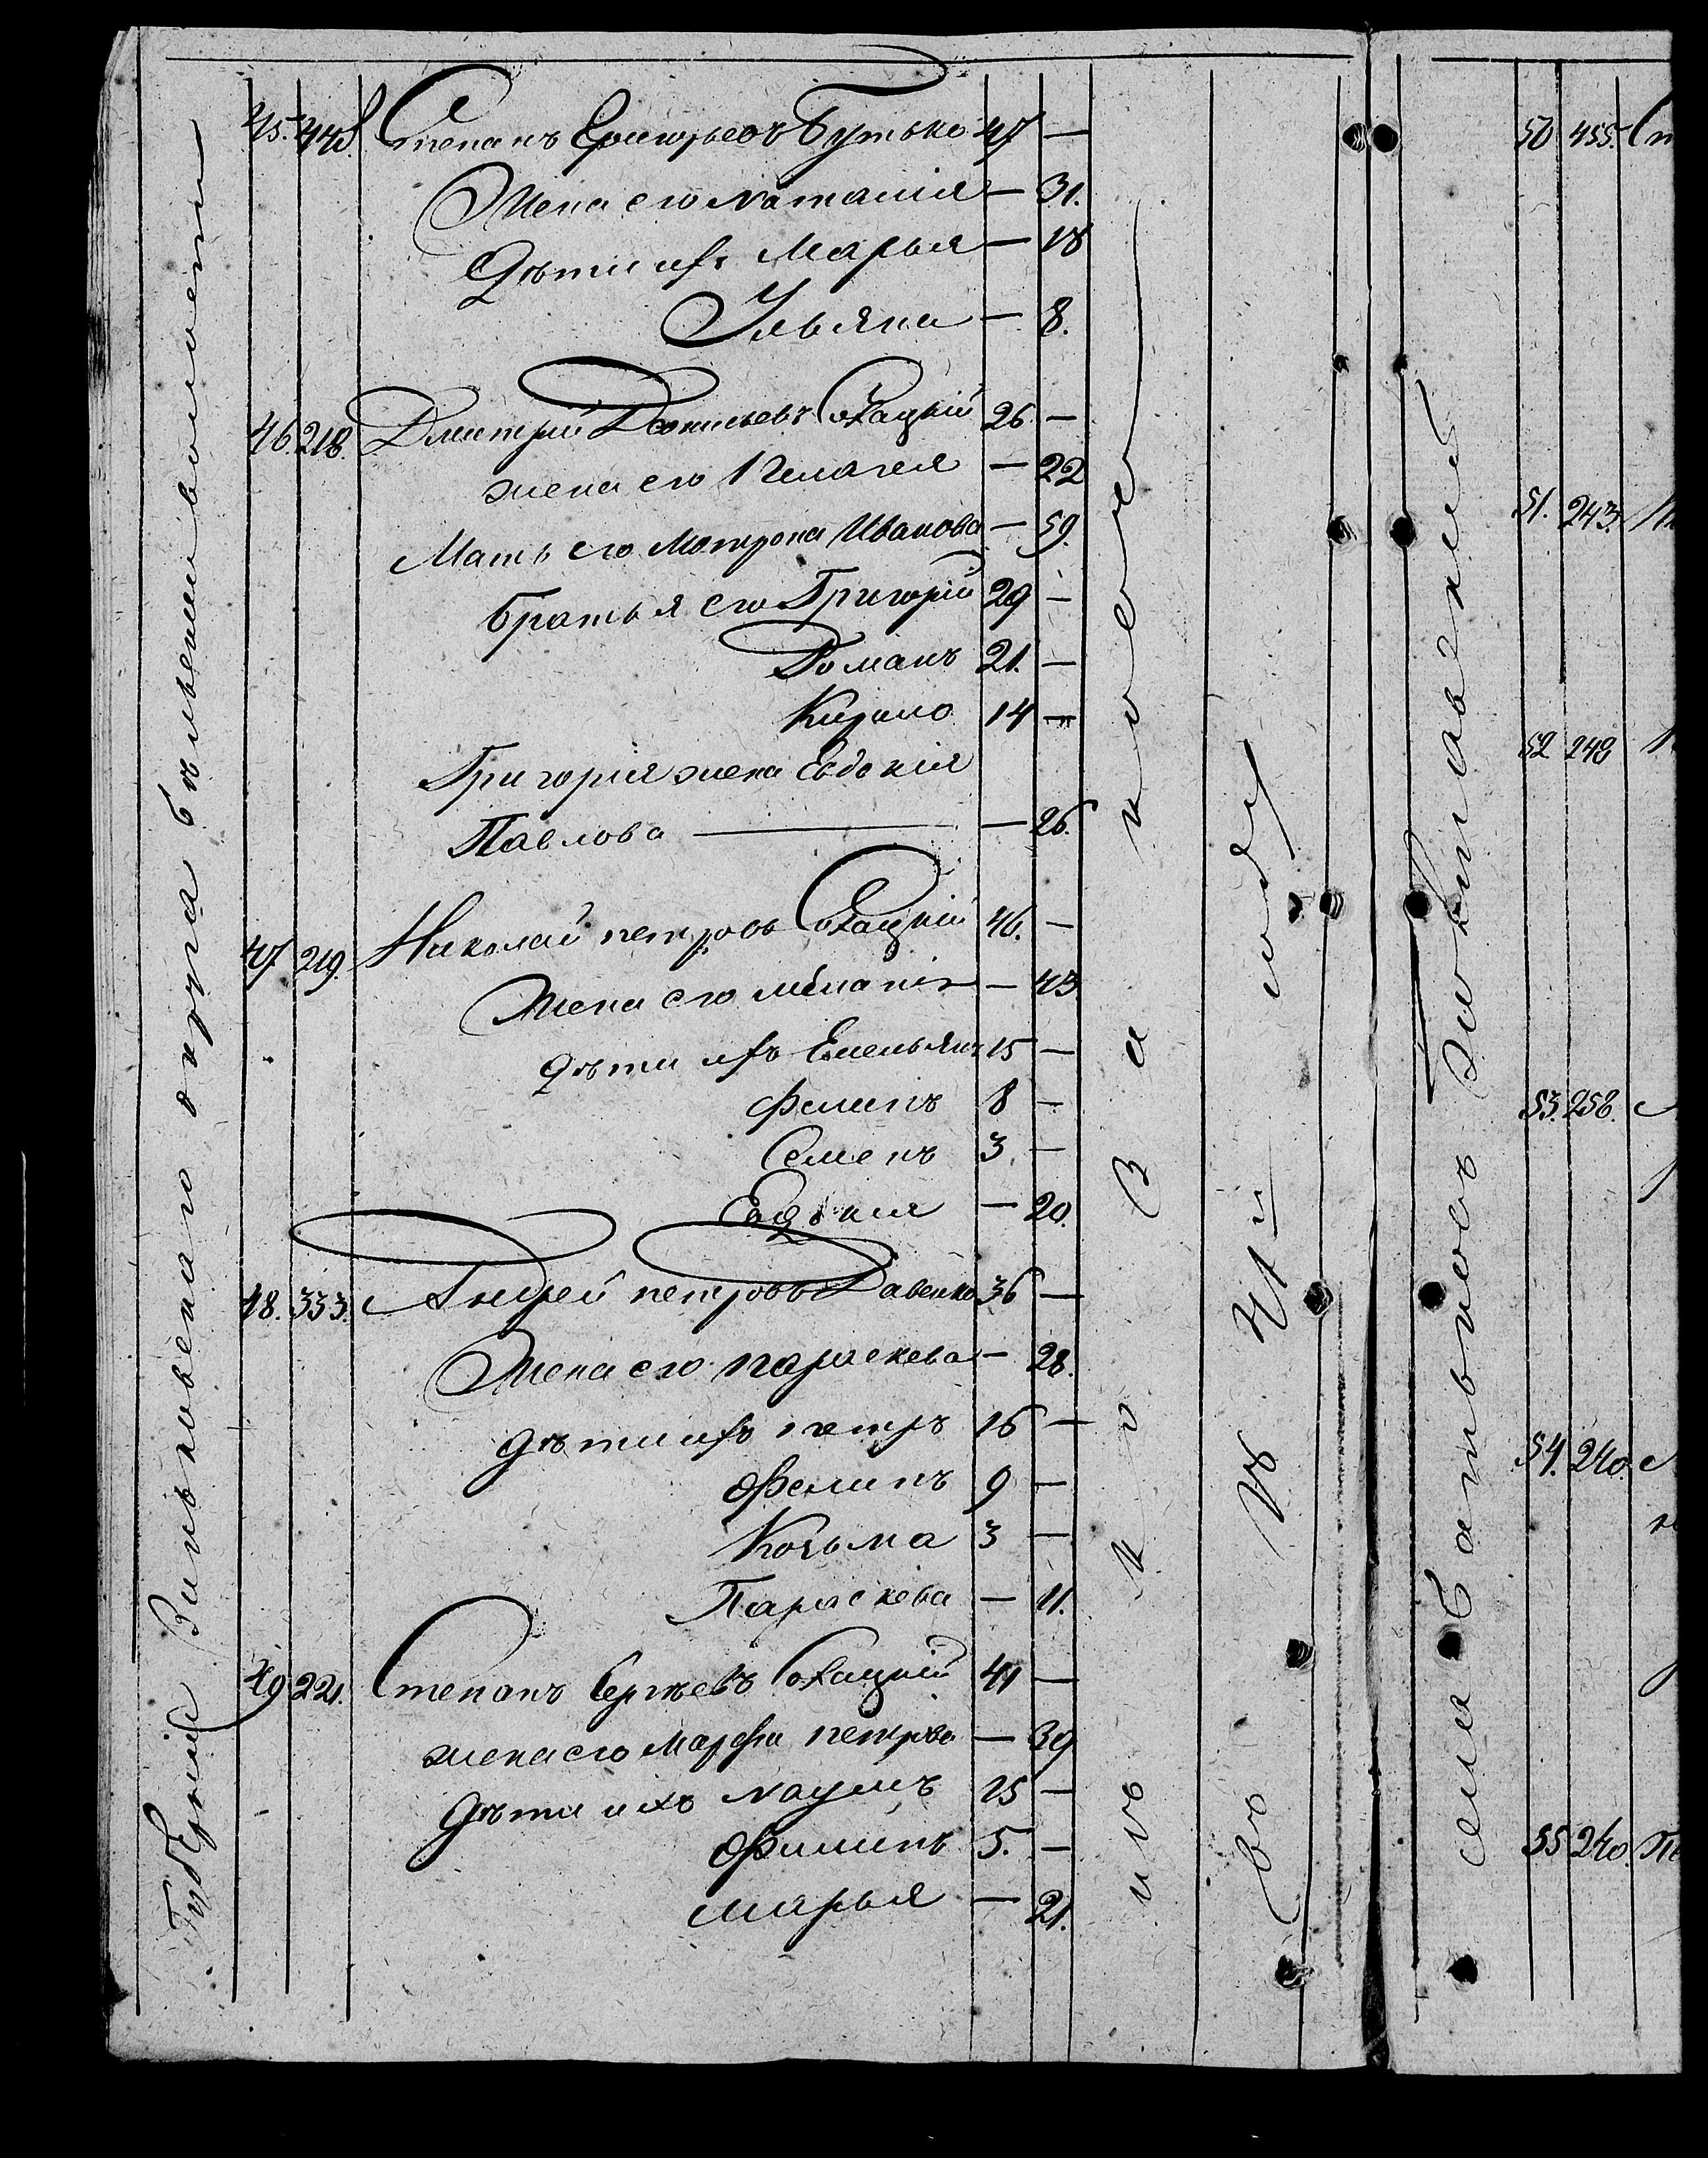 45. 448. Степанъ Григорьевъ Бутько 47 —
Жена его Наталия — 31.
Дѣти ихъ Марья — 18
Ульяна — 8.
46. 218. Дмитрий Данильевъ Сохацкий 26. —
жена его Пелагея — 22
Мать его Мотрона Иванова — 59.
братья его Григорий 29 —
Романъ 21. —
Кирило 14 —
Григория жена Евдокия
Павлова — 26.
47 219. Николай петровъ Сохацкий 46. —
Жена его мелания — 43
дѣти ихъ Емельянъ 15 —
Филипъ 8 —
Семенъ 3. —
Евдокия — 20.
48. 333. Андрей петровъ Савенко 36 —
Жена его параскева — 28.
дѣти ихъ петръ 16 —
Филипъ 9 —
Козьма 3 —
Параскева — 11.
49 221. Степанъ Сергѣевъ Сохацкий 41 —
жена его Марфа петрова — 39
Дѣти ихъ Наумъ 15 —
Филипъ 5. —
марья — 21.
Губернии
округа
въ
году
села
50 455. Ст
51. 243.
52 248
53. 258.
54. 240.
55 240.